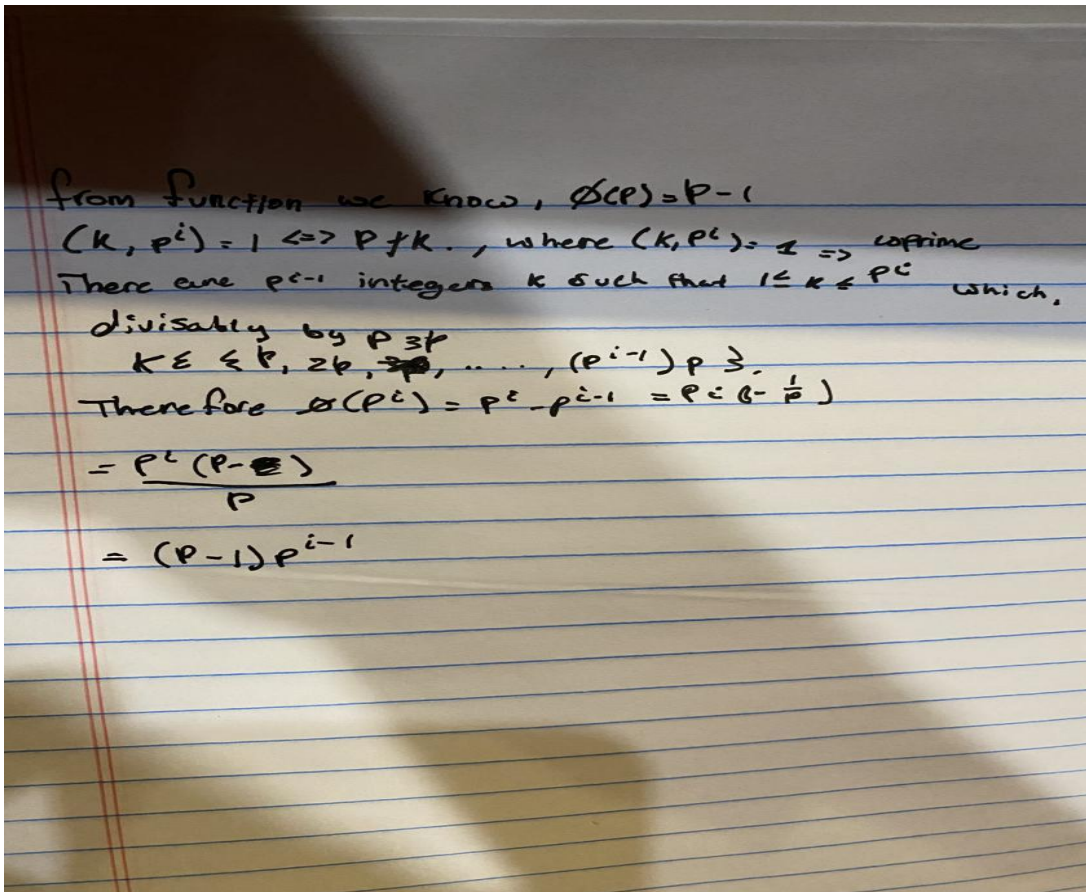 from function we know, Ø(P)=p-1
(k, pⁱ) = 1 <=> P ∤ k., where (k, pⁱ)= 1 => coprime
There are pⁱ⁻¹ integers k such that 1≤ k ≤ pⁱ which,
divisably by p
3p
k ε {p, 2p, ...., (pⁱ⁻¹) p }.
Therefore Ø(pⁱ) = pⁱ - pⁱ⁻¹ = pⁱ (1- 1/p)
= pⁱ (p- ) / p
= (P-1) pⁱ⁻¹